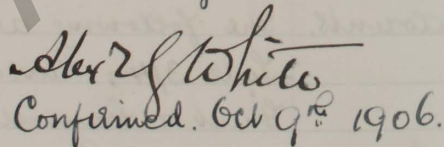 Alex G White
Confirmed. Oct 9th 1906.